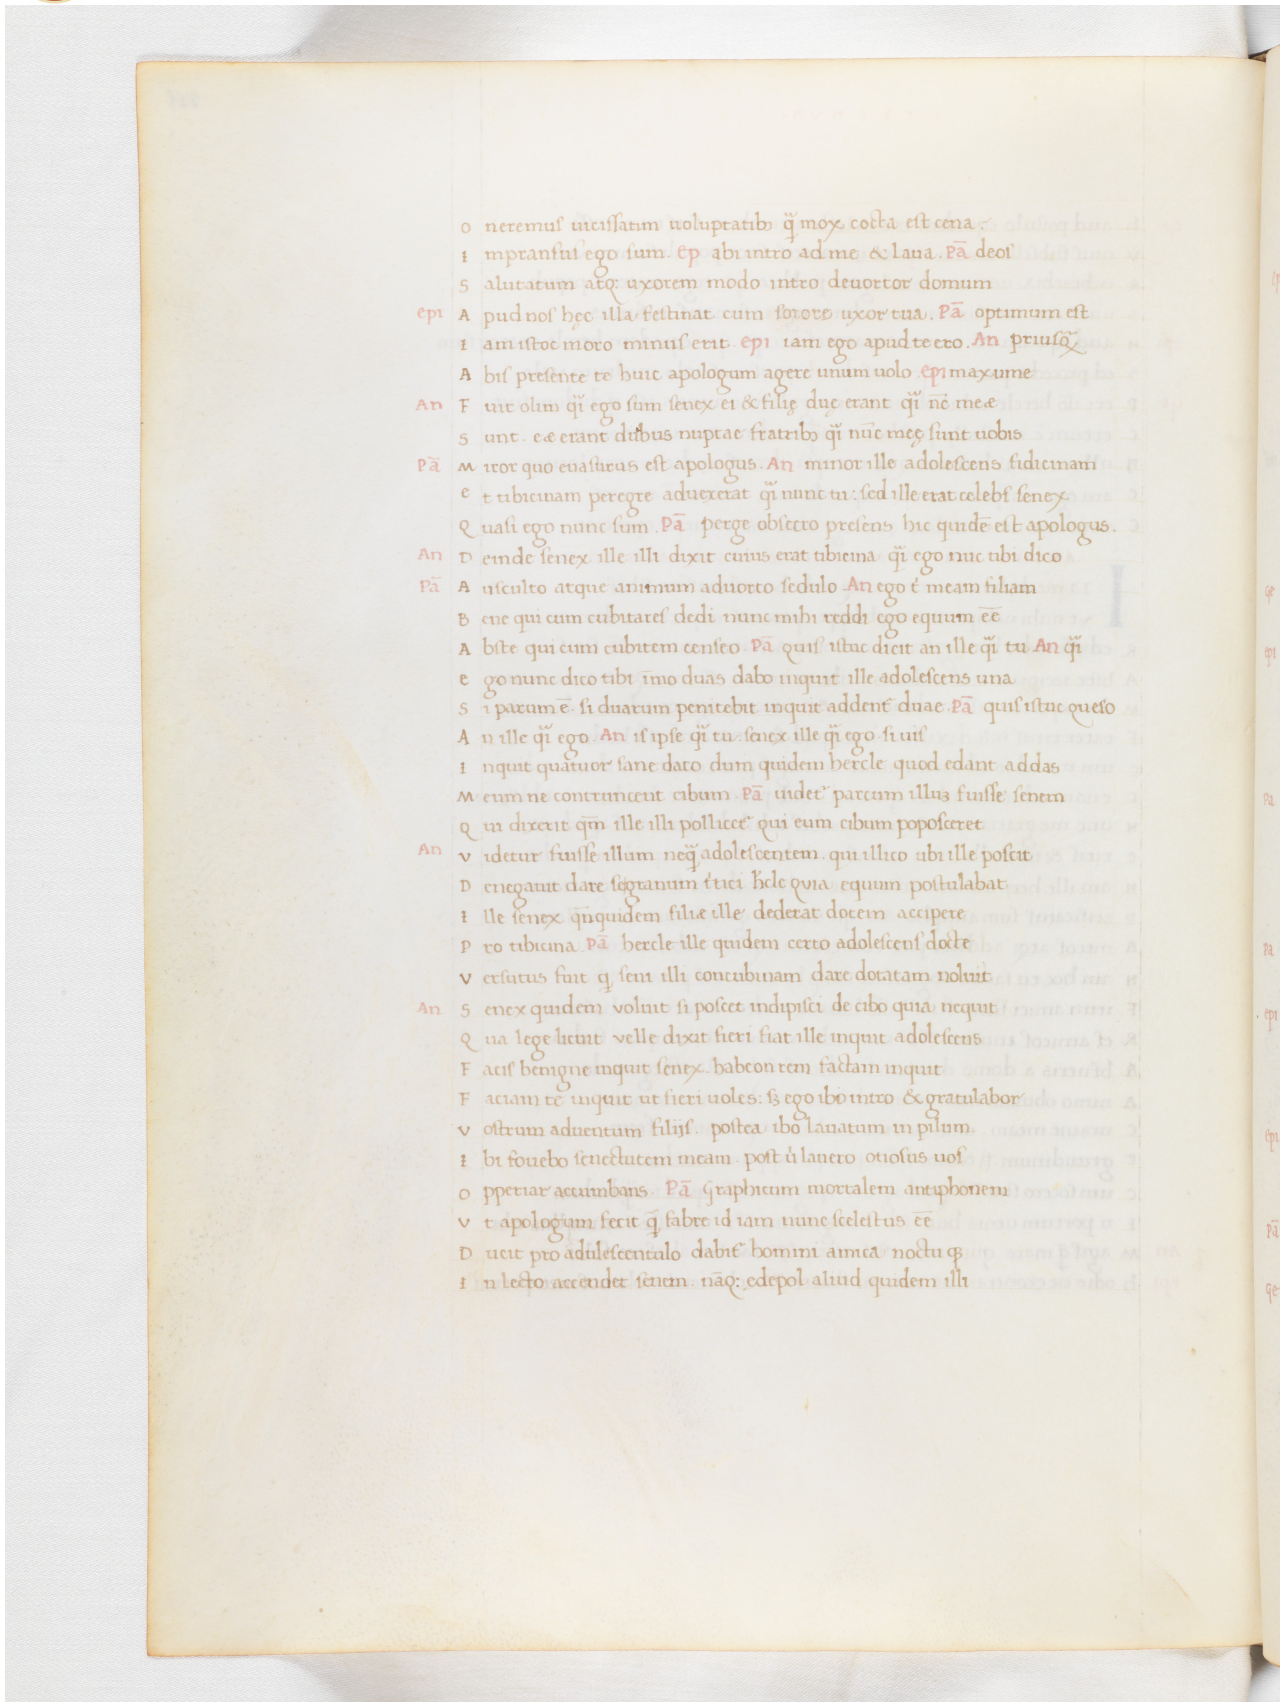 O neremuſ uiciſſatim uoluptatibꝫ qͣ mox cocta eſt cena.
I mpranſuſ ego ſum. Ep abi intro ad me & laua. Pā deoſ
S alutatum atq: uxorem modo intro deuortor domum
epi A pud noſ hęc illa feſtinat cum ſorore uxor tua. Pā optimum eſt
I am iſtoc moro minuſ erit epi iam ego apud te ero. An priusqͣ
A bis preſente te huic apologum agere unum uolo epi maxume
An F uit olim qͣi ego ſum ſenex ei & filię duę erant qͣi nc̄ meæ
S unt. eæ erant duobus nuptae fratribꝫ qͣi nūc meę ſunt uobis
Pā M iror quo euaſurus eſt apologus. An minor ille adoleſcens fidicinam
E t tibicinam peregre aduexerat qͣi nunc tu: ſed ille erat celebſ ſenex
Q uaſi ego nunc ſum. Pā perge obſecro preſens hic quidē eſt apologus.
An D einde ſenex ille illi dixit cuius erat tibicina qͣi ego nuc tibi dico
Pā A uſculto atque animum aduorto ſedulo. An ego t̄ meam filiam
B ene qui cum cubitareſ dedi nunc mihi reddi ego equum eē
A bſte qui cum cubitem cenſeo. Pā quiſ iſtuc dicit an ille qͣi tu An qͣi
E go nunc dico tibi īmo duas dabo inquit ille adoleſcens una
S i parum ē. ſi duarum penitebit inquit addent᷑ duae. Pā quiſ iſtuc queſo
A n ille qͣi ego. An iſ ipſe qͣi tu. ſenex ille qͣi ego. ſi uiſ
I nquit quatuor ſane dato dum quidem hercle quod edant addas
M eum ne contruncent cibum. Pā uidet᷑ parcum illuꝫ fuiſſe ſenem
Q ui dixerit qm̄ ille illi pollicet᷑ qui eum cibum popoſceret
An V idetur fuiſſe illum neqͣ adoleſcentem. qui illico ubi ille poſcit
D enegauit dare ſe granum t͛tici h̄cle quia equum poſtulabat
I lle ſenex qn̄quidem filiæ ille dederat dotem accipere
P ro tibicina. Pā hercle ille quidem certo adoleſcenſ docte
V erſutus fuit q̨ ſeni illi concubinam dare dotatam noluit
An S enex quidem voluit ſi poſcet indipiſci de cibo quia nequit
Q ua lege licuit velle dixit fieri fiat ille inquit adoleſcens
F aciſ benigne inquit ſenex. habeon rem factam inquit
F aciam te inquit ut fieri uoles: ſꝫ ego ibo intro & gratulabor
V oſtrum aduentum filijſ. poſtea ibo lauatum in pilum
I bi fouebo ſenectutem meam. poſt ů lauero otioſus uoſ
O pperiar accumbans. Pā Graphicum mortalem antiphonem
V t apologum fecit q̄ fabre id iam nunc ſceleſtus eē
D ucit pro aduleſcentulo dabit᷑ homini amica noctu qꝫ
I n lecto accendet ſenem. nāq: edepol aliud quidem illi